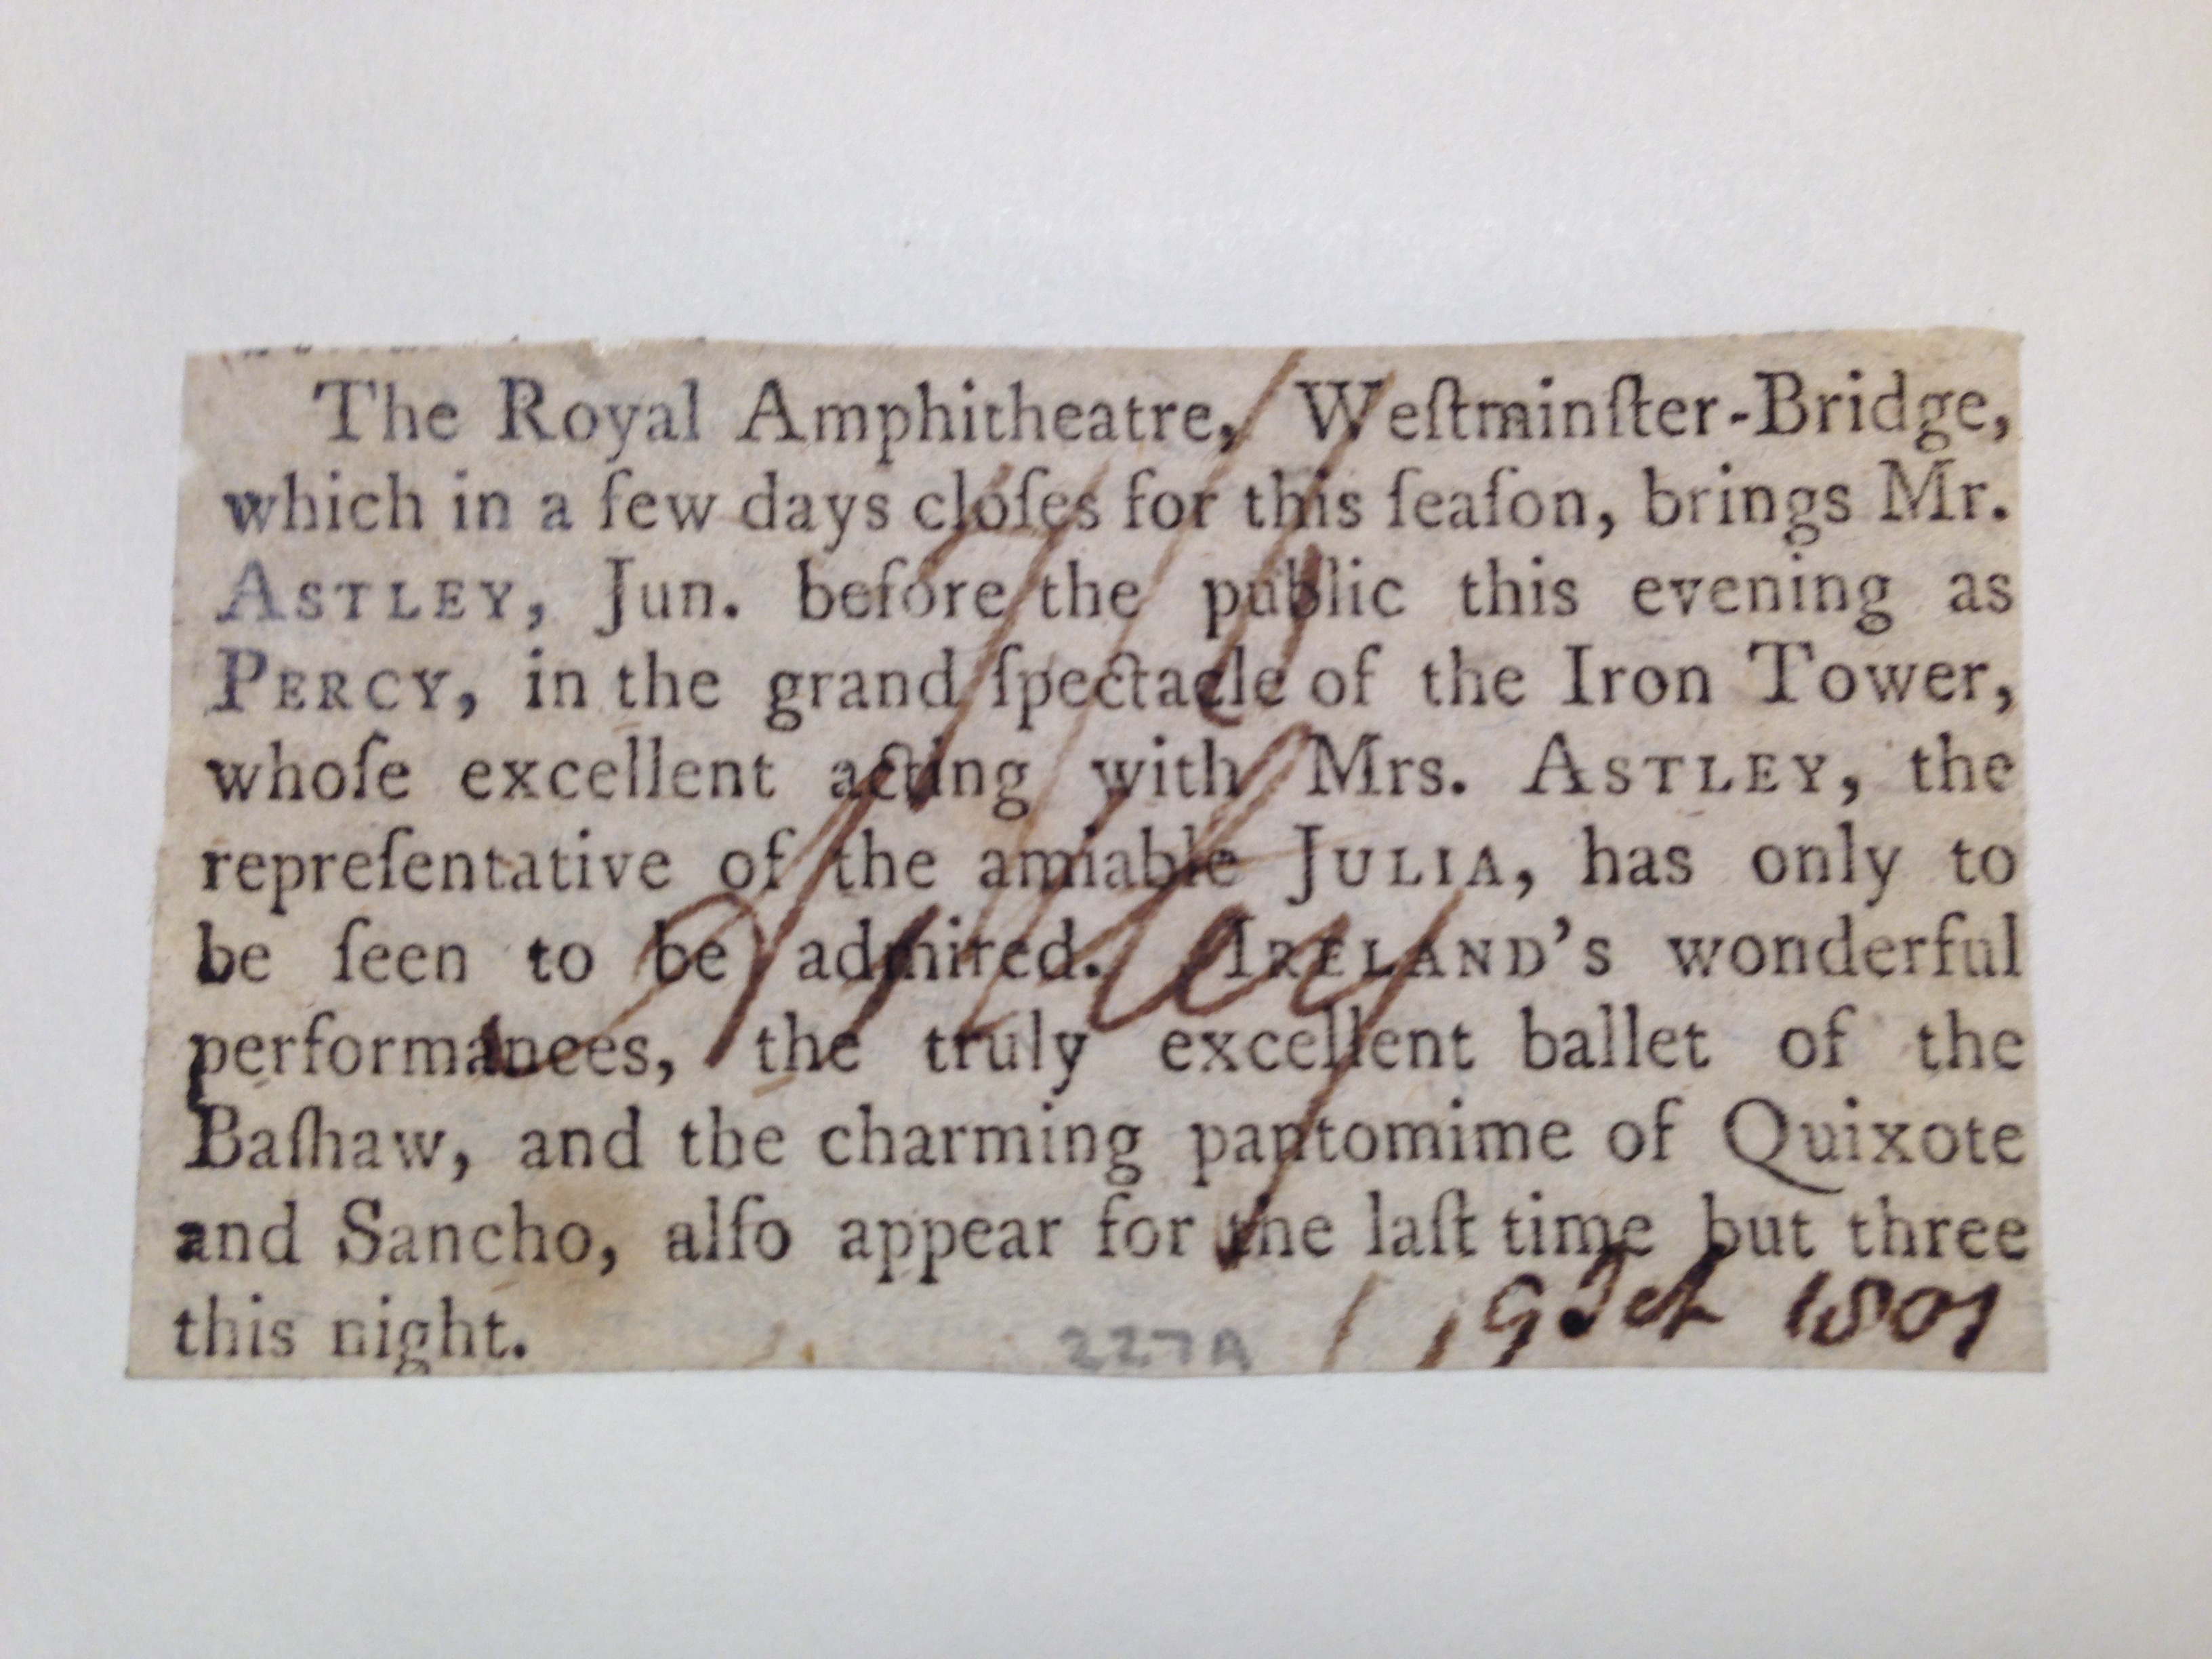 The Royal Amphitheatre, Weſtminſter-Bridge,
which in a few days cloſes for this ſeaſon, brings Mr.
ASTLEY, Jun. before the public this evening as
PERCY, in the grand ſpectacle of the Iron Tower,
whoſe excellent acting with Mrs. ASTLEY, the
repreſentative of the amiable JULIA, has only to
be ſeen to be admired. IRELAND'S wonderful
performances, the truly excellent ballet of the
Baſhaw, and the charming pantomime of Quixote
and Sancho, alſo appear for the laſt time but three
this night.
Astley
19 Oct 1801
227A